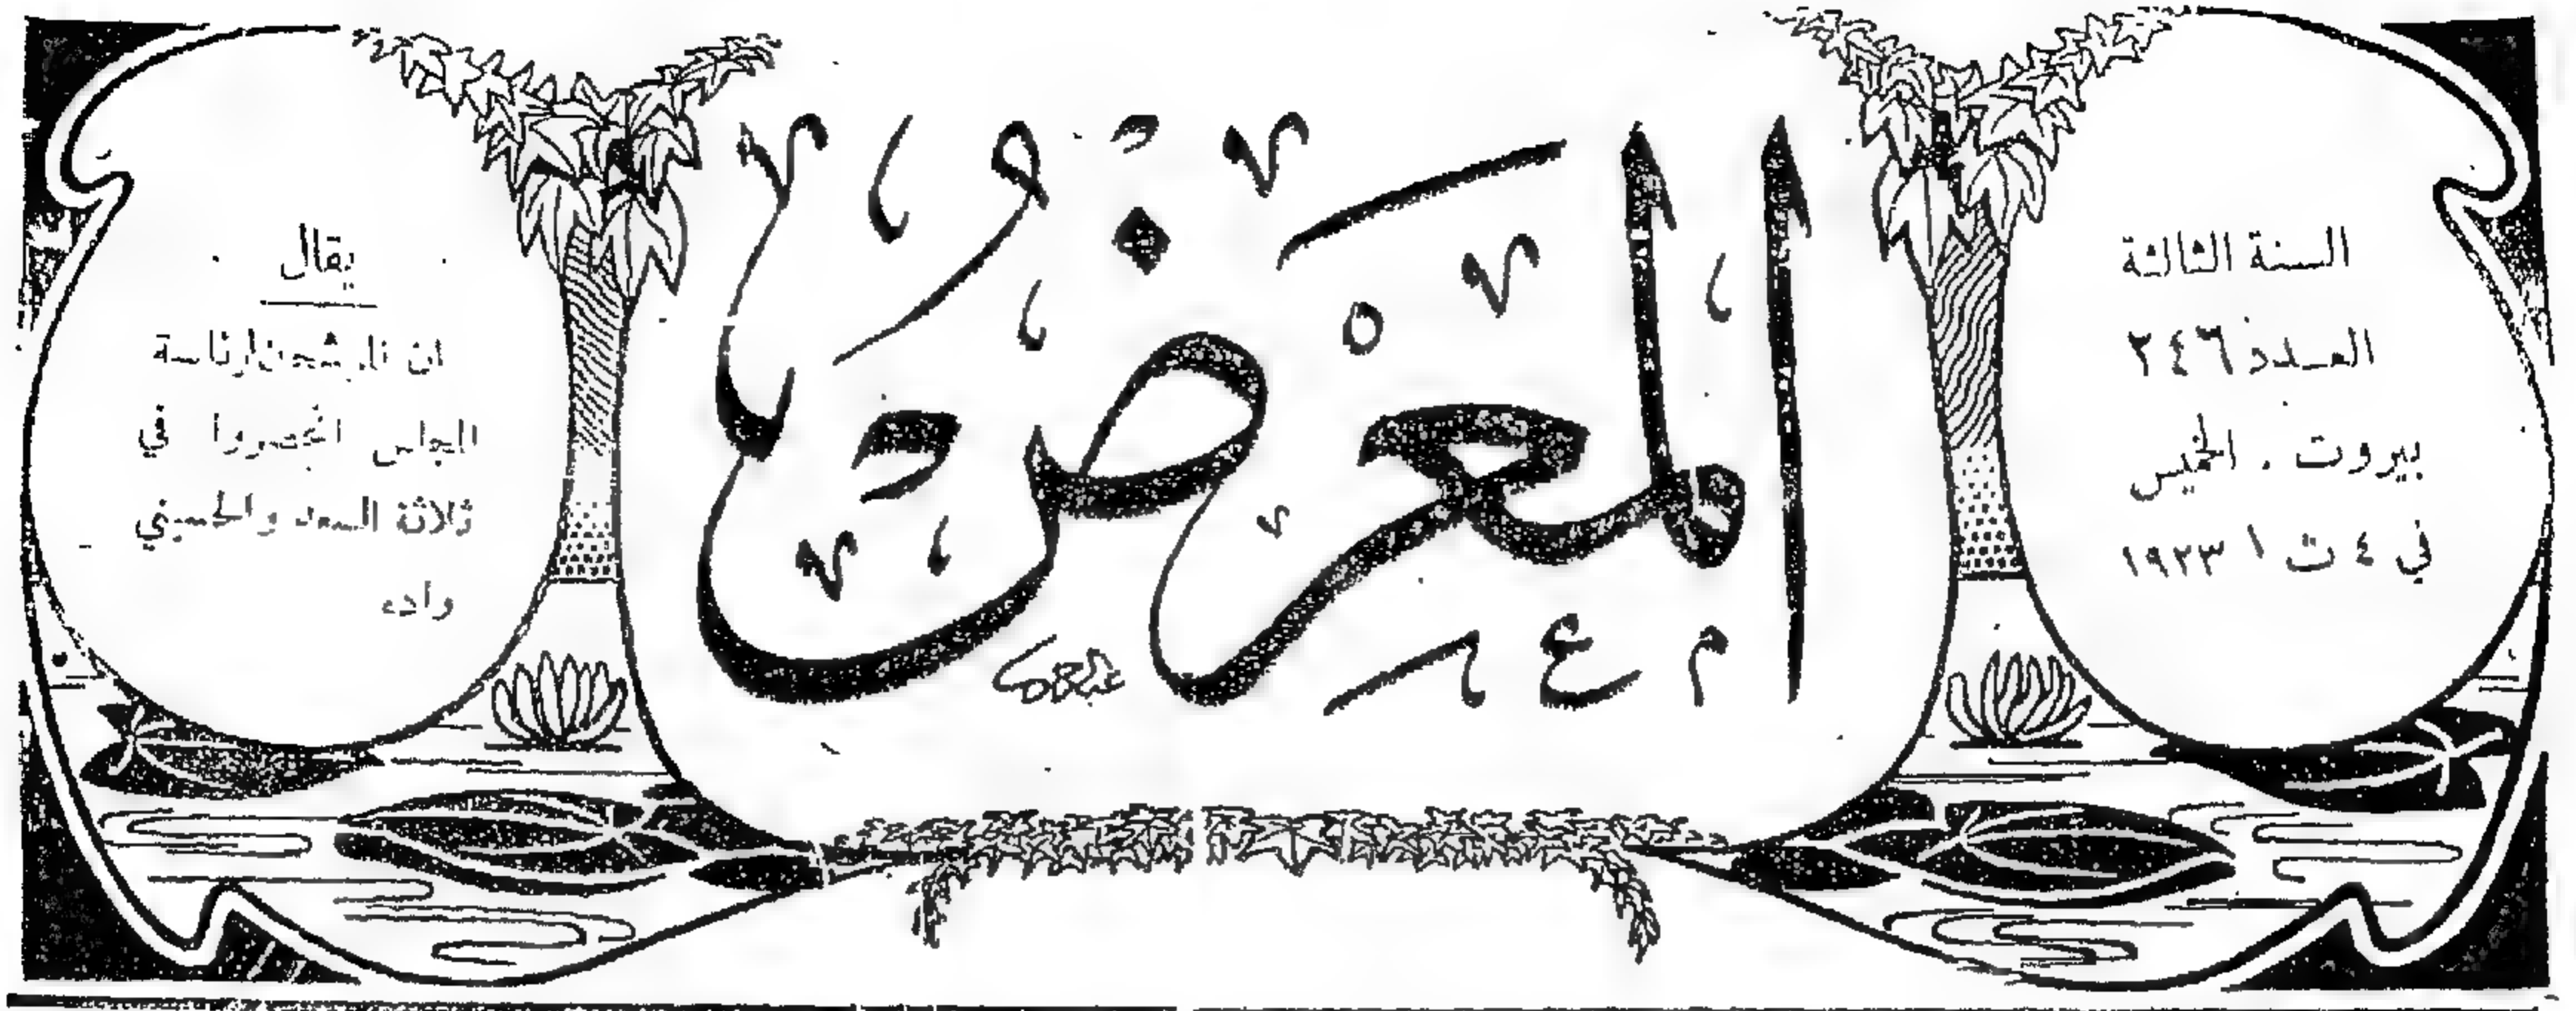 السنة الثالثة
العدد ٢٤٦
بيروت . الخميس
في ٤ ت ١ ١٩٢٣
المعرض
يقال
ان المرشحين لرئاسة
المجلس انحصروا في
ثلاثة السعد والحسيني
واده